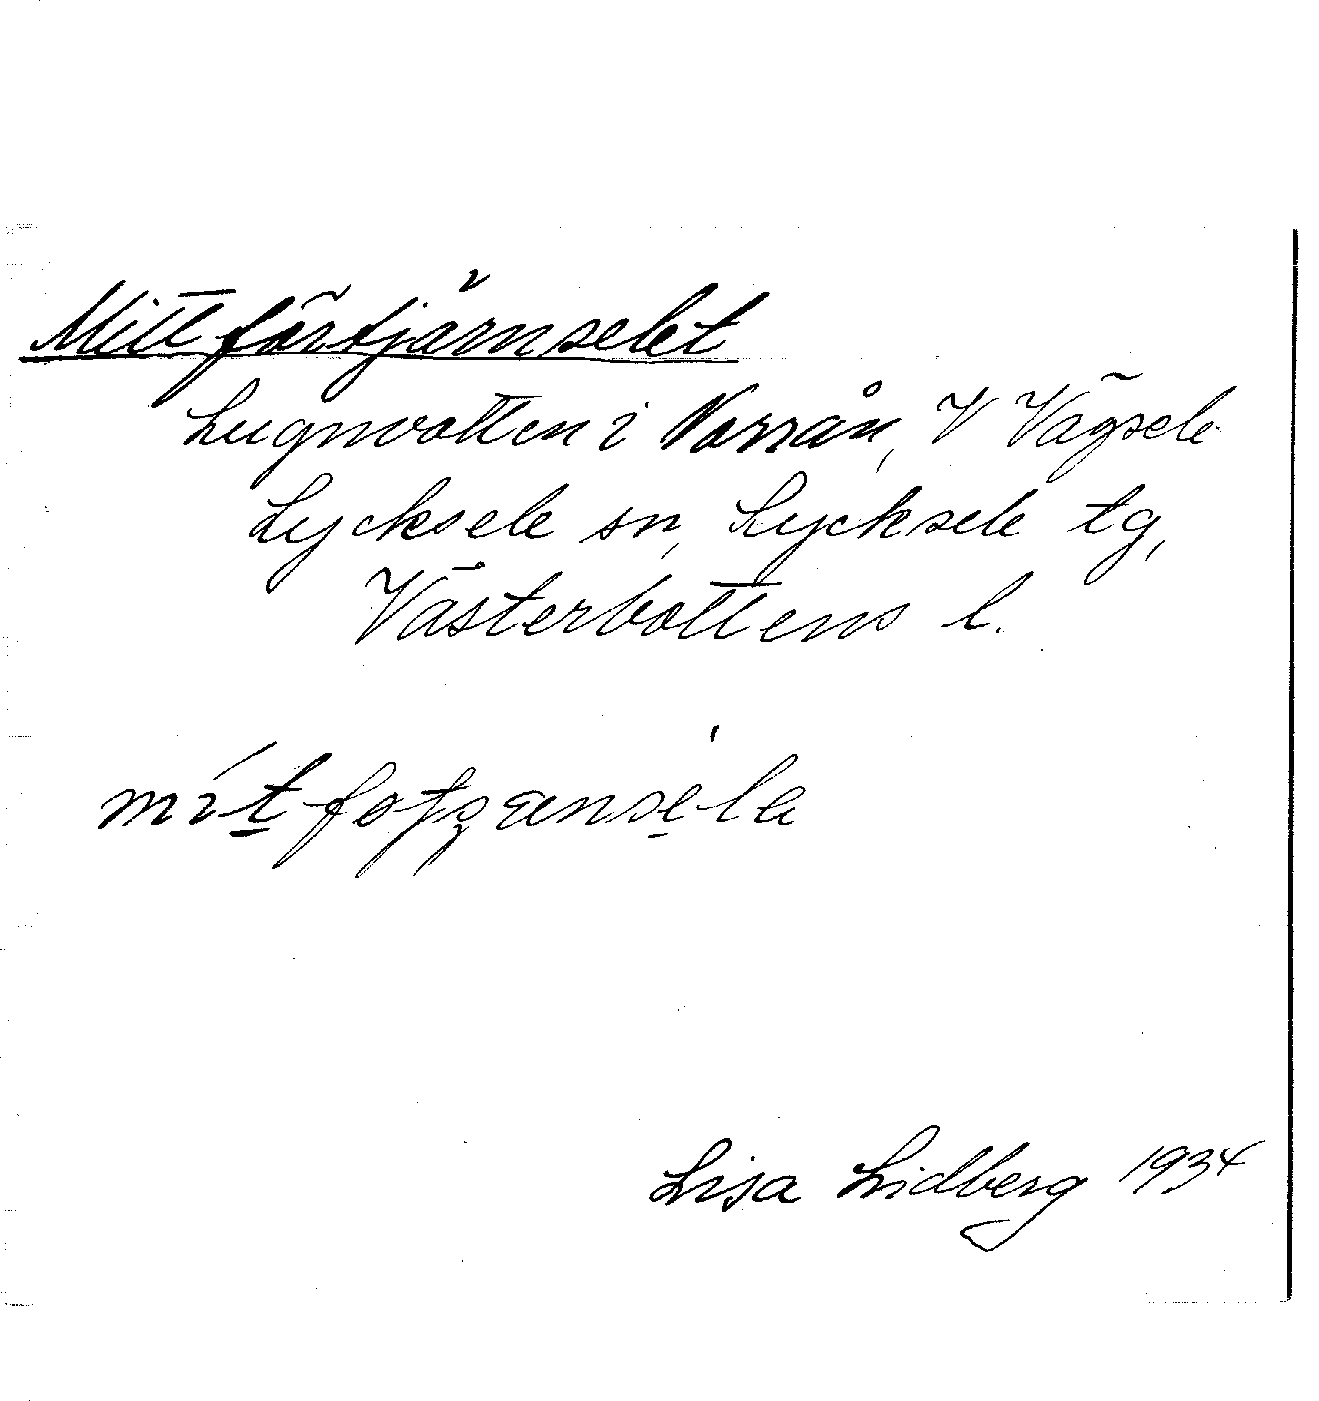 Mittförtjärnselet
Lugnvatten i Norrån, V Vägsele
Lycksele sn, Lycksele tg,
Västerbottens l.
Lisa Lidberg 1934